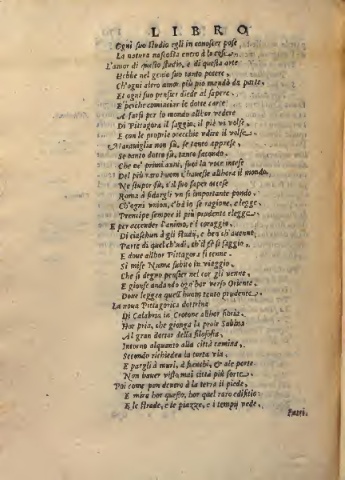 LIBRO
Ogni suo studio egli in conoscer pose
La natura nascosta entro à le cose.
L'amor di questo studio, e di questa arte
Hebbe nel genio suo tanto potere,
Ch'ogni altro amor più pio mondò da parte,
Et ogni suo pensier diede al sapere.
E perche cominciar le dotte carte
A farsi per lo mondo allhor vedere
Di Pittagora il saggio, il più vi volse,
E con le proprie orecchie udire il volse.
Maraviglia non fù, se tanto apprese,
Se tanto dotto fù, tanto facondo.
Che ne' primi anni suoi la voce intese
Del più raro huom c'havesse allhora il mondo.
Ne stupor fù, s'il suo saper intese
Roma à fidargli un sì importante pondo.
Ch'ogni union, c'hà in se ragione, e legge,
Prencipe sempre il più prudente elegge.
E per accender l'animo, e'l coraggio
Di ciaschun à gli studij, e ben ch'avenne,
Parte di quel ch'udì, ch'ei fè sì saggio,
E dove allhor Pittagora si tenne.
Si mise Numa subito in viaggio,
Che sì degno pensier nel cor gli venne,
E giunse andando ogn'hor verso Oriente,
Dove legger quell'huom tanto prudente.
La nova Pittagorica dottrina
Di Calabria in Crotone allhor fioria.
Hor pria, che gionga la prole Sabina
Al gran dottor della filosofia,
Intorno alquanto alla città camina,
Secondo richiedea la torta via,
E pargli à muri, à fianchi, & alle porte
Non haver vista mai città più forte.
Poi come pon dentro à la terra il piede,
E mira hor questo, hor quel raro edificio:
E le strade, e le piazze, e i tempij vede,
Fuori